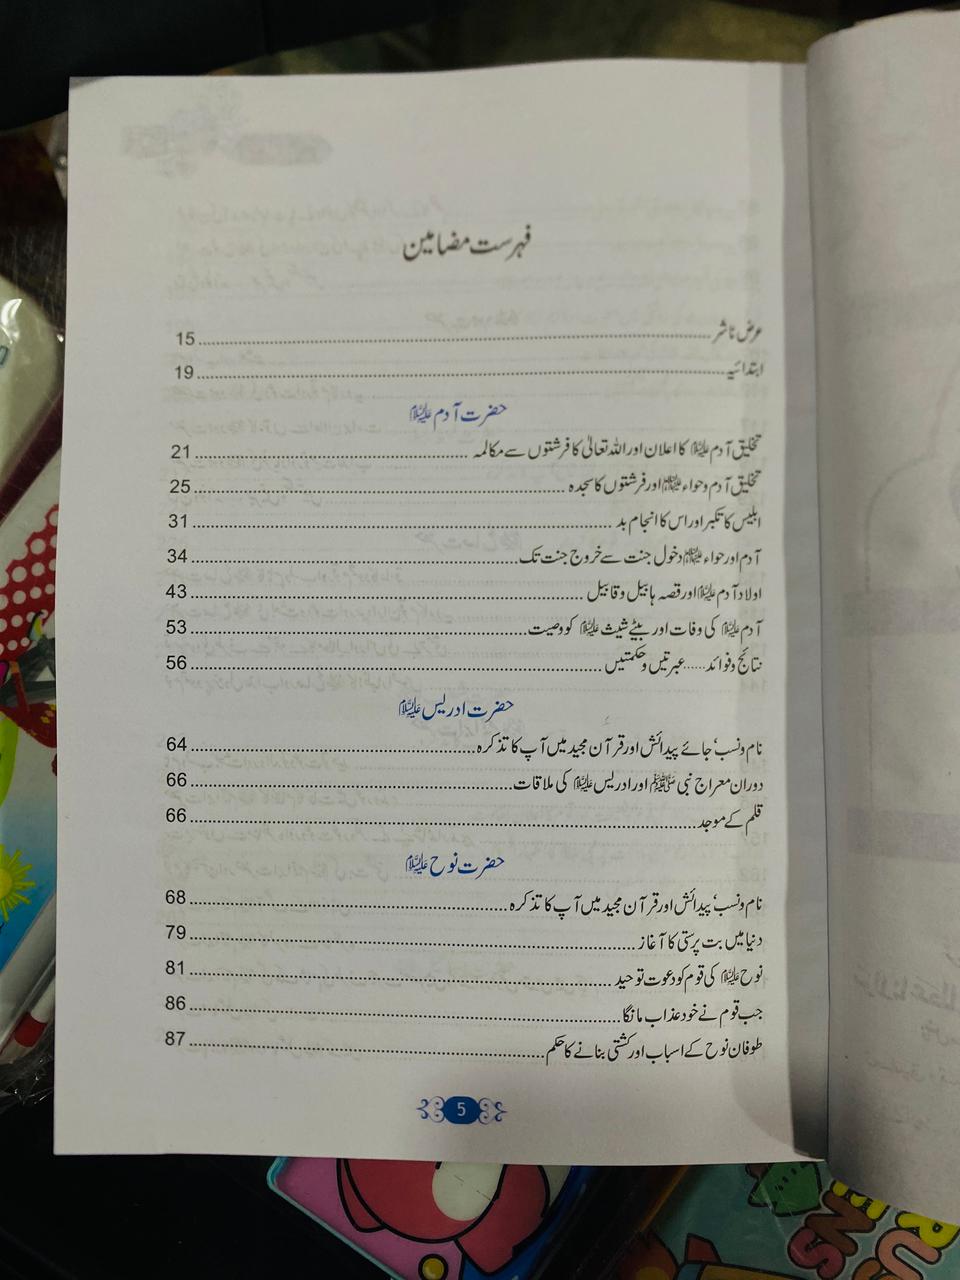 فہرست مضامین
عرض ناشر 15
ابتدائیہ 19
حضرت آدم علیہ السلام
تخلیق آدم علیہ السلام کا اعلان اور اللہ تعالیٰ کا فرشتوں سے مکالمہ 21
تخلیق آدم و حواء علیہما السلام اور فرشتوں کا سجدہ 25
ابلیس کا تکبر اور اس کا انجام بد 31
آدم اور حواء علیہما السلام دخول جنت سے خروج جنت تک 34
اولاد آدم علیہ السلام اور قصہ ہابیل و قابیل 43
آدم علیہ السلام کی وفات اور بیٹے شیث علیہ السلام کو وصیت 53
نتائج و فوائد...... عبرتیں و حکمتیں 56
حضرت ادریس علیہ السلام
نام و نسب‘ جائے پیدائش اور قرآن مجید میں آپ کا تذکرہ 64
دوران معراج نبی ﷺ اور ادریس علیہ السلام کی ملاقات 66
قلم کے موجد 66
حضرت نوح علیہ السلام
نام و نسب‘ پیدائش اور قرآن مجید میں آپ کا تذکرہ 68
دنیا میں بت پرستی کا آغاز 79
نوح علیہ السلام کی قوم کو دعوت توحید 81
جب قوم نے خود عذاب مانگا 86
طوفان نوح کے اسباب اور کشتی بنانے کا حکم 87
5